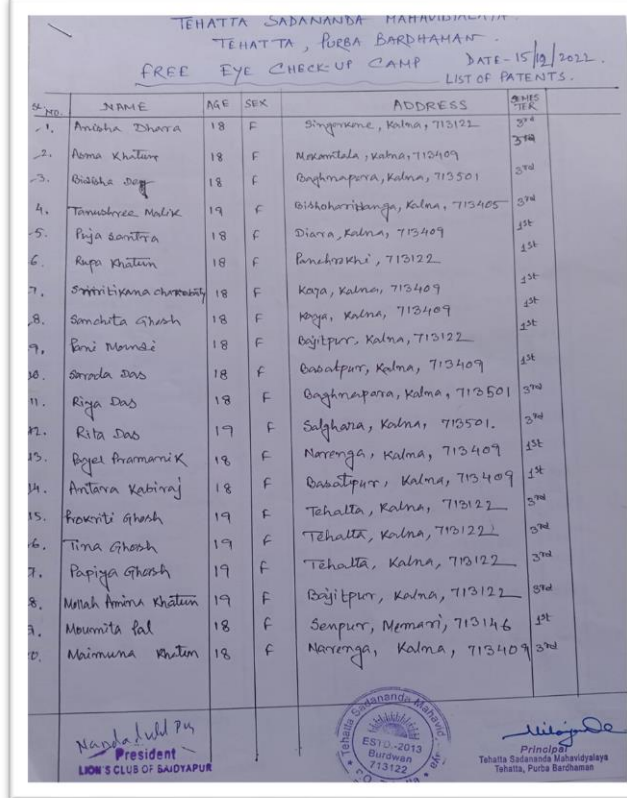 TEHATTA SADANANDA MAHAVIDYALAYA.
TEHATTA, PURBA BARDHAMAN.
FREE EYE CHECK-UP CAMP DATE - 15/12/2022.
LIST OF PATENTS.
SL. NO. NAME AGE SEX ADDRESS SEMES TER
1. Anisha Dhara 18 F Singerkone, Kalna, 713122 3rd
2. Asma Khatun 18 F Mokamtala, Kalna, 713409 3rd
3. Bidisha Dey 18 F Baghnapara, Kalna, 713501 3rd
4. Tanushree Malik 19 F Kalna, 713405 3rd
5. Puja Santra 18 F Diara, Kalna, 713409 1st
6. Rupa Khatun 18 F Panchrokhi, 713122 1st
7. Smritikana Chakrabaty 18 F Koya, Kalna, 713409 1st
8. Sanchita Ghosh 18 F Kalna, 713409 1st
9. Pani 18 F Bajitpur, Kalna, 713122 1st
10. Saroda Das 18 F Basatpur, Kalna, 713409 1st
11. Riya Das 18 F Baghnapara, Kalna, 713501 3rd
12. Rita Das 19 F Salghara, Kalna, 713501. 3rd
13. Payel Pramanik 18 F Narenga, Kalna, 713409 1st
14. Antara Kabiraj 18 F Basatpur, Kalna, 713409 1st
15. Prokriti Ghosh 19 F Tehatta, Kalna, 713122 3rd
6. Tina Ghosh 19 F Tehatta, Kalna, 713122 3rd
7. Papiya Ghosh 19 F Tehatta, Kalna, 713122 3rd
8. Mollah Amina Khatun 19 F Bajitpur, Kalna, 713122 3rd
9. Moumita Pal 18 F Senpur, Memari, 713146 1st
0. Maimuna Khatun 18 F Narenga, Kalna, 713409 3rd
President
LION'S CLUB OF BAIDYAPUR
Tehatta Sadananda Mahavidyalaya
ESTD.-2013
Burdwan
713122
Principal
Tehatta Sadananda Mahavidyalaya
Tehatta, Purba Bardhaman